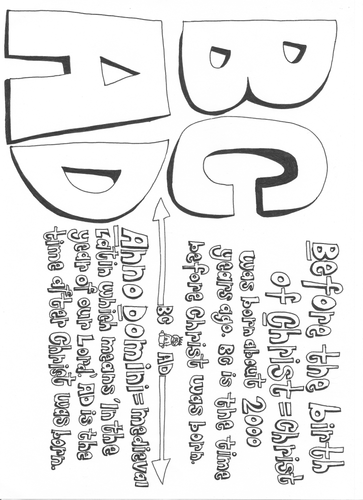 BC
Before the birth
of Christ = Christ
was born about 2000
years ago. BC is the time
before Christ was born.
BC AD
AD
Anno Domini = medieval
Latin which means 'In the
year of our Lord'. AD is the
time after Christ was born.